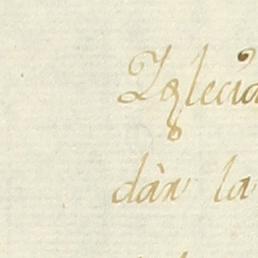 Yglecia
dàn la